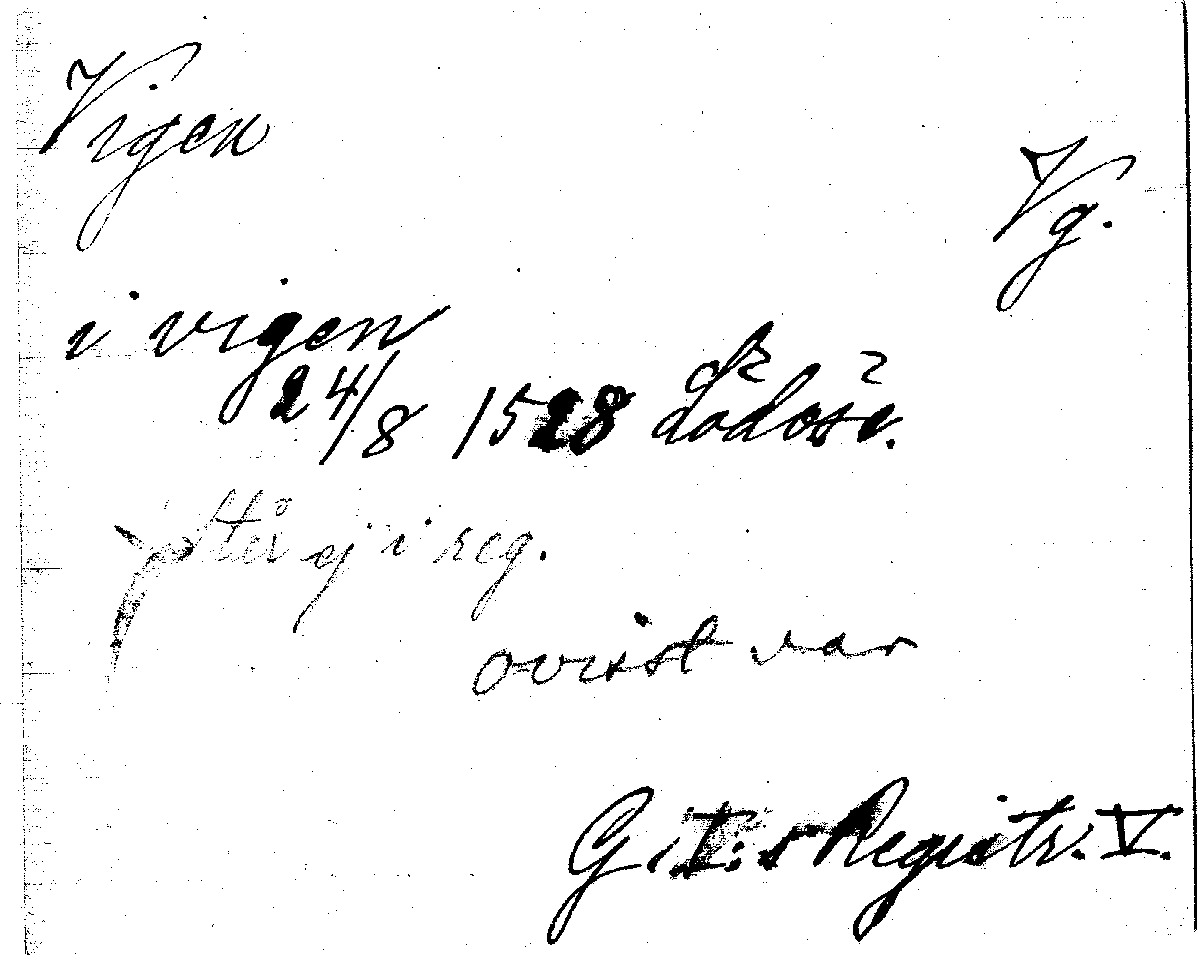 Vigen
Vg.
i vigen
24/8 1528 Lödöse.
står ej i reg.
ovisst var
G. I:s Registr. V.